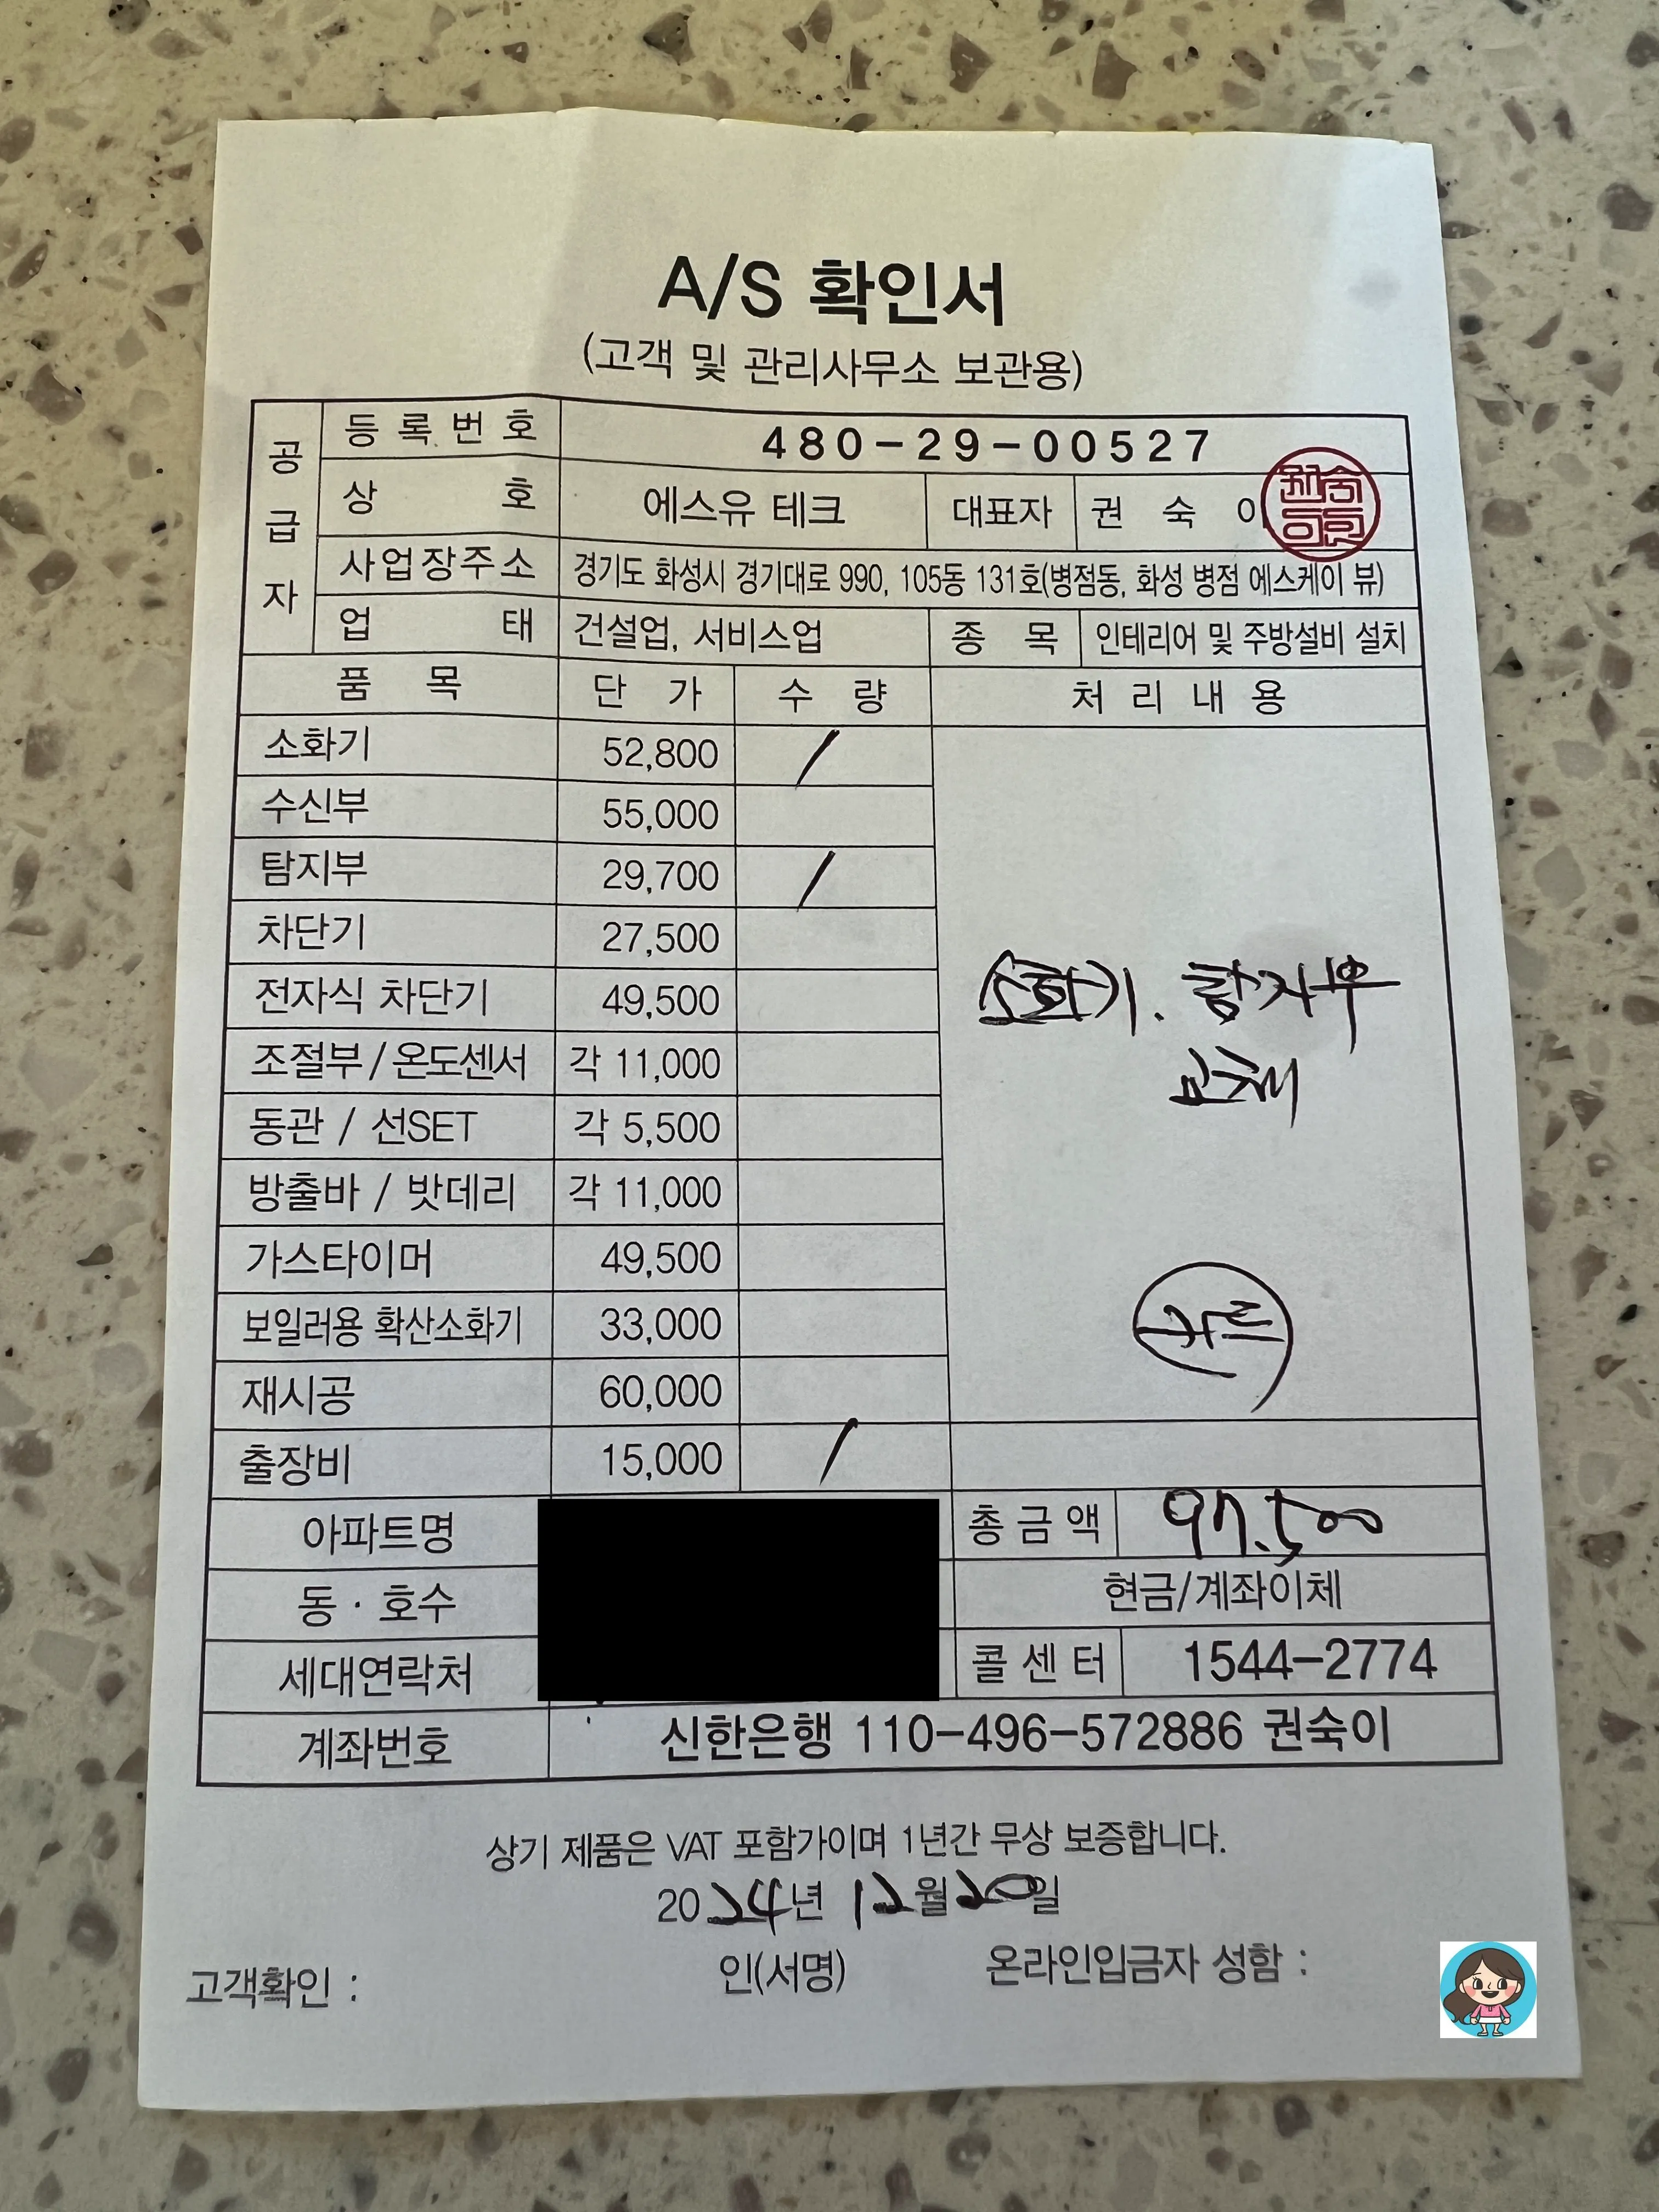 A/S 확인서
(고객 및 관리사무소 보관용)
공급자
등록번호 480-29-00527
상호 에스유 테크 대표자 권숙이
사업장주소 경기도 화성시 경기대로 990, 105동 131호(병점동, 화성 병점 에스케이 뷰)
업태 건설업, 서비스업 종목 인테리어 및 주방설비 설치
품목 단가 수량 처리내용
소화기 52,800 /
수신부 55,000
탐지부 29,700 /
차단기 27,500
전자식 차단기 49,500
소화기. 탐지부
조절부/온도센서 각 11,000
교체
동관 / 선SET 각 5,500
방출바 / 밧데리 각 11,000
가스타이머 49,500
보일러용 확산소화기 33,000
카드
재시공 60,000
출장비 15,000 /
아파트명 총금액 97.500
동 · 호수 현금/계좌이체
세대연락처 콜센터 1544-2774
계좌번호 신한은행 110-496-572886 권숙이
상기 제품은 VAT 포함가이며 1년간 무상 보증합니다.
2024년 12월 20일
고객확인 : 인(서명) 온라인입금자 성함 :